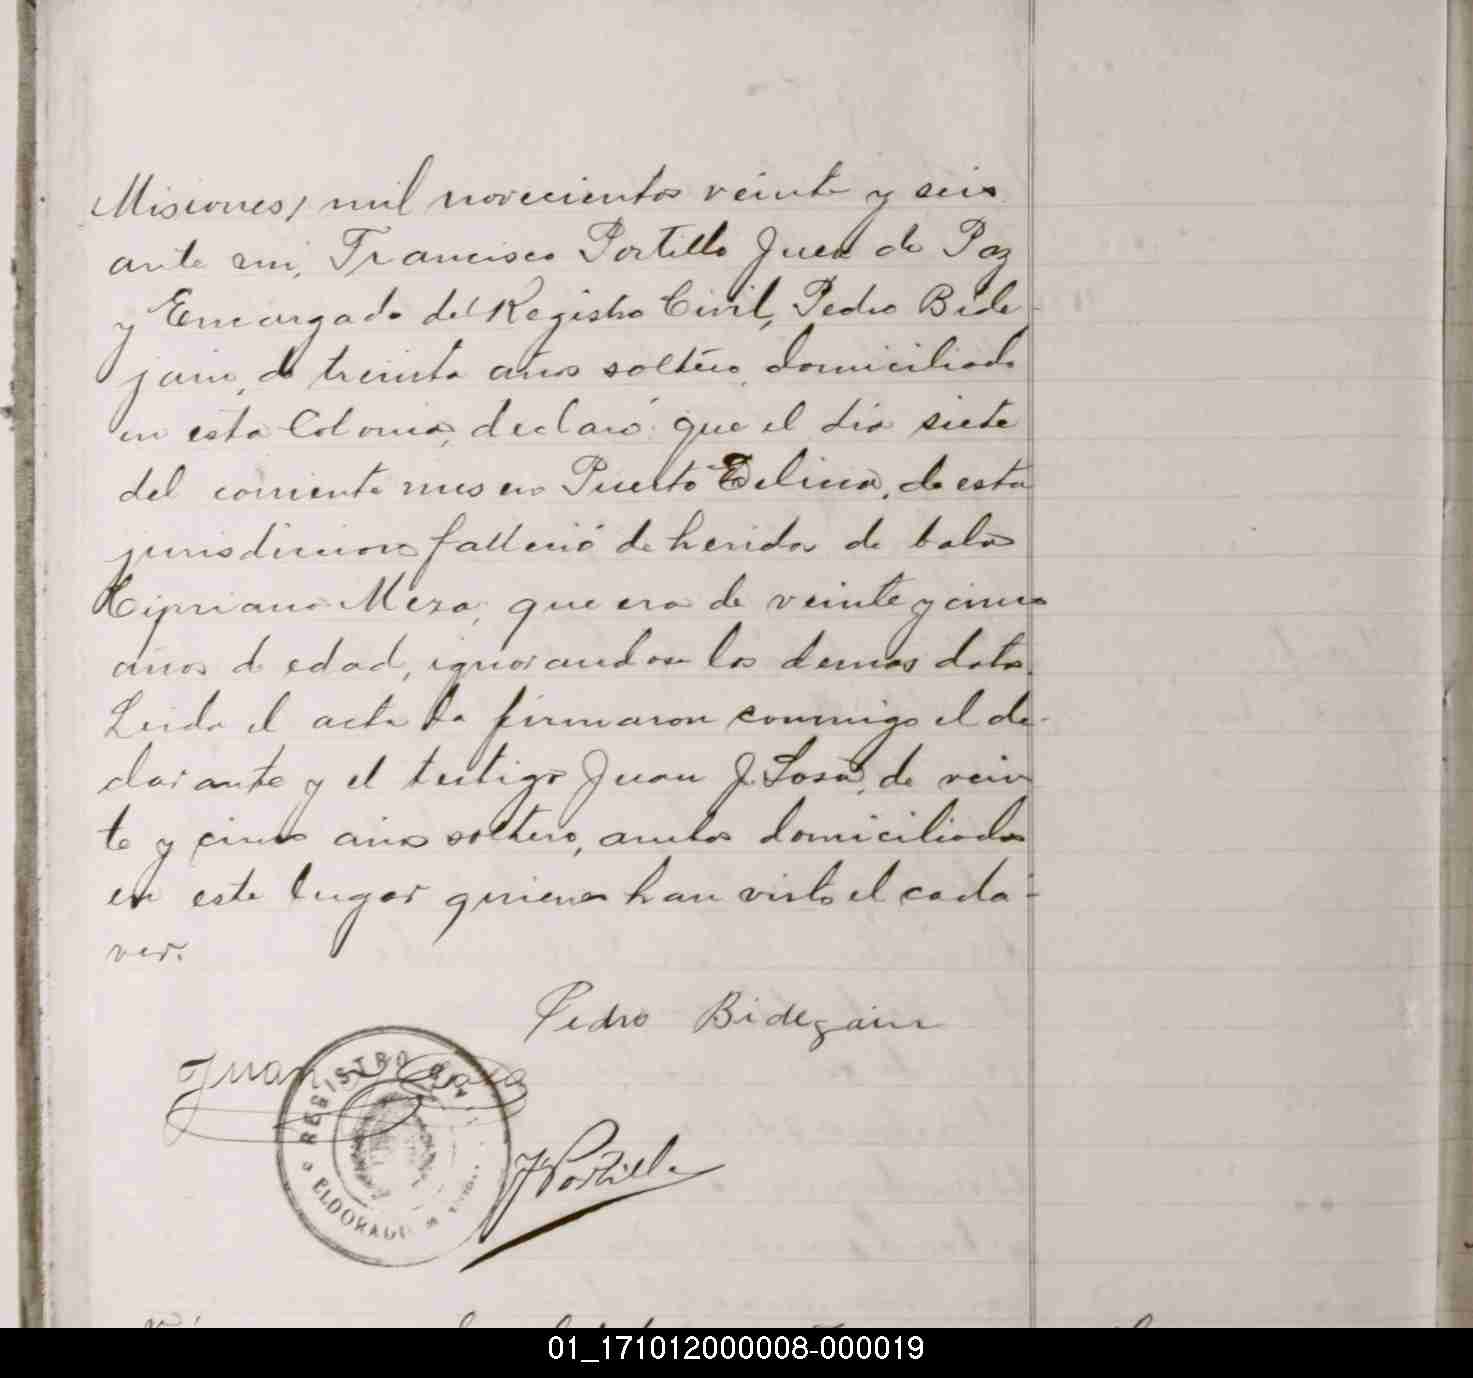 Misiones, mil novecientos veinte y seis
ante mi, Francisco Portillo Juez de Paz
y Encargado del Registro Civil, Pedro Bide-
jain, de treinta años soltero, domiciliado
en esta Colonia, declaró: que el dia siete
del corriente mes en Puerto Delicia, de esta
jurisdiccion falleció de heridas de balas
Cipriano Meza, que era de veinte y cinco
años de edad, ignorandose los demas datos.
Leida el acta la firmaron conmigo el de-
clarante y el testigo Juan J. Sosa, de vein
te y cinco años soltero, ambos domiciliados
en este lugar quienes han visto el cada-
ver.
Pedro Bidegain
Juan Sosa
REGISTRO CIVIL
ELDORADO
F Portillo
01_171012000008-000019